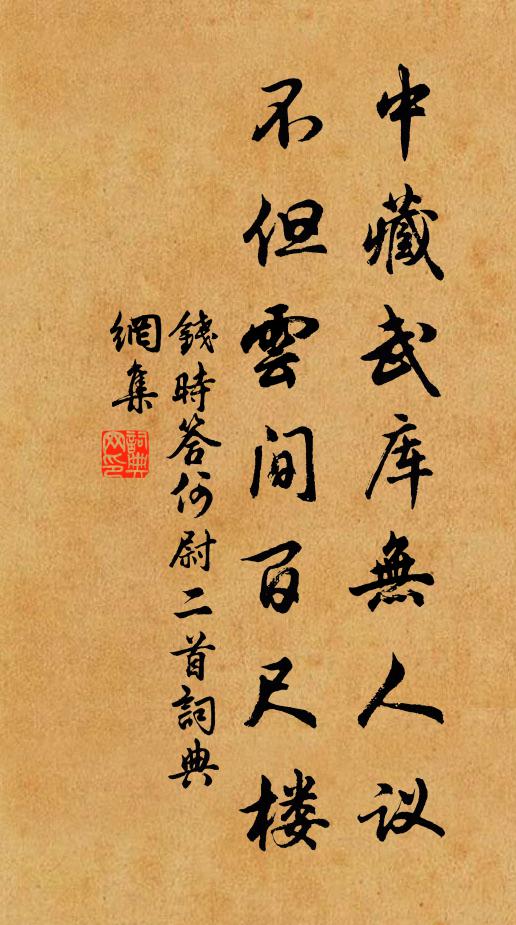 中藏武库無人议
不但雲间百尺楼
錢時答何尉二首詞典
網集
詞典网印